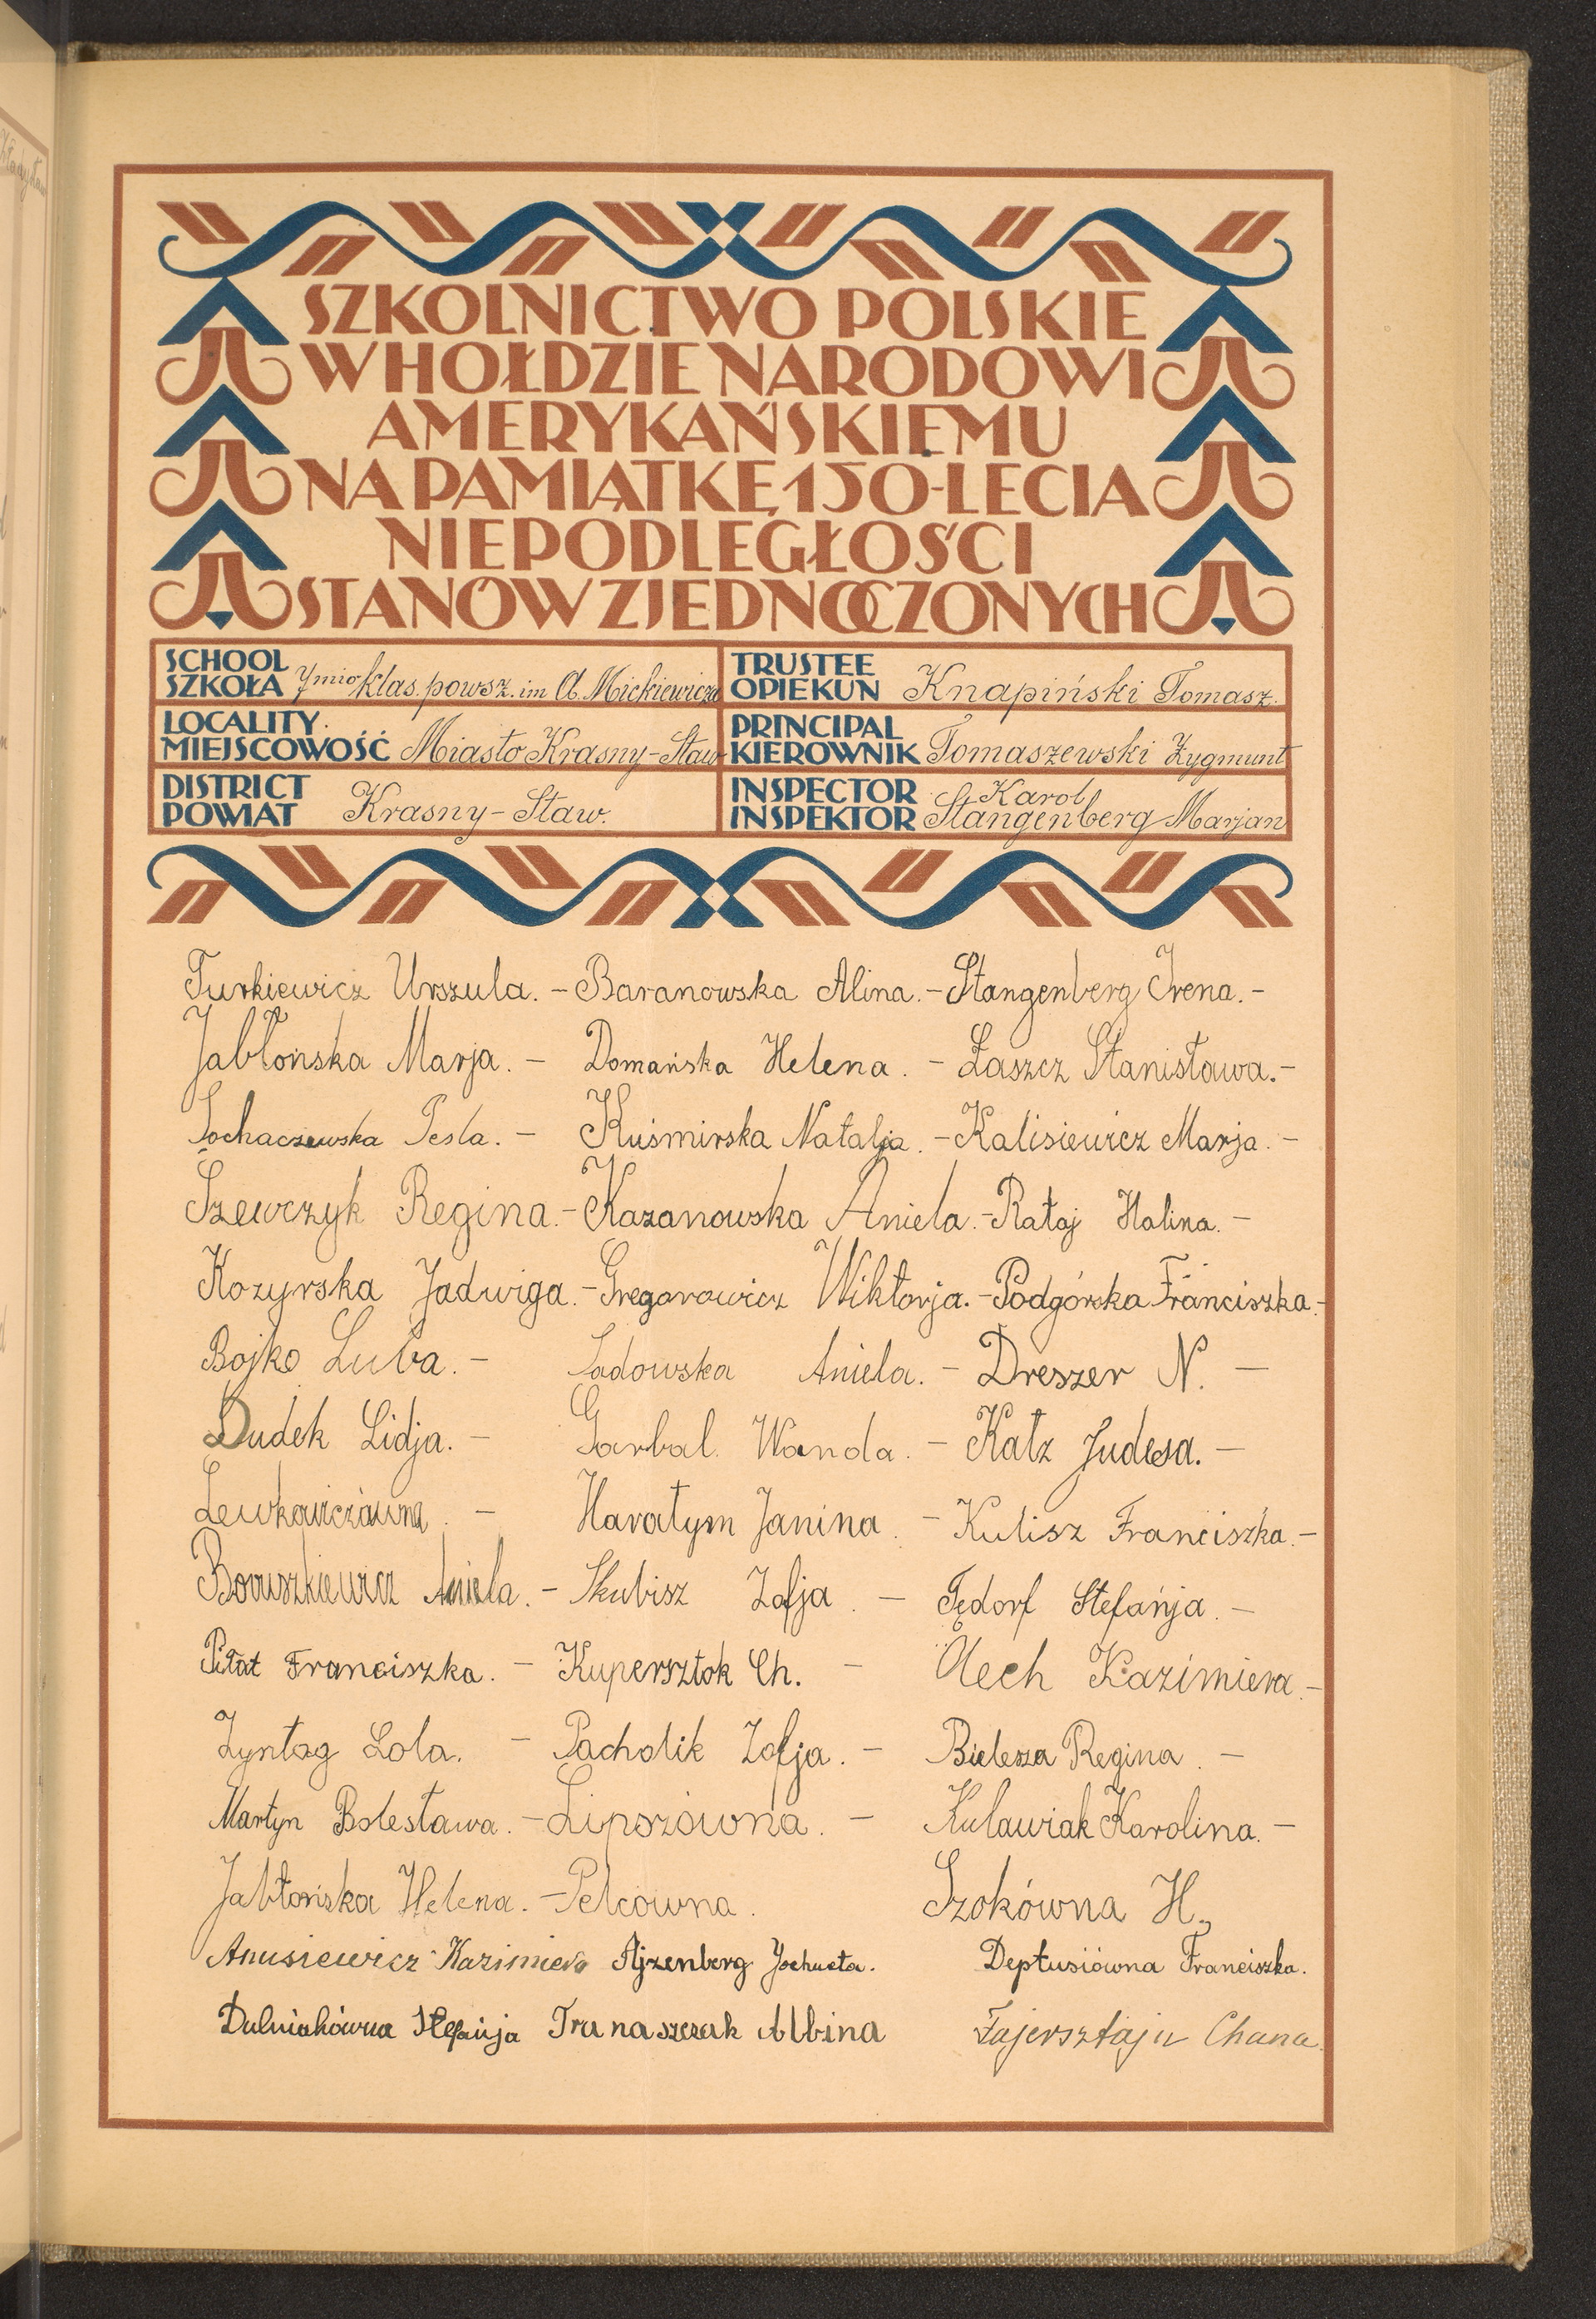 SZKOLNICTWO POLSKIE
W HOŁDZIE NARODOWI
AMERYKAŃSKIEMU
NA PAMIĄTKĘ 150-LECIA
NIEPODLEGŁOŚCI
STANÓW ZJEDNOCZONYCH
SCHOOL
SZKOŁA 7mio klas. powsz. im A. Mickiewicza
TRUSTEE
OPIEKUN Knapiński Tomasz.
LOCALITY.
MIEJSCOWOŚĆ Miasto Krasny-Staw
PRINCIPAL
KIEROWNIK Tomaszewski Zygmunt
DISTRICT
POWIAT Krasny-Staw.
INSPECTOR Karol
INSPEKTOR Stangenberg Marjan
Turkiewicz Urszula. - Baranowska Alina. - Stangenberg Irena. -
Jabłońska Marja. - Domańska Helena. - Łaszcz Stanisława. -
Sochaczewska Pesla. - Kuśmirska Natalja. - Kalisiewicz Marja. -
Szewczyk Regina. - Kazanowska Aniela. - Rataj Halina. -
Kozyrska Jadwiga. - Gregorowicz Wiktorja. - Podgórska Franciszka. -
Bojko Luba. - Sadowska Aniela. - Dreszer N. -
Dudek Lidja. - Garbal. Wanda. - Katz Judesa. -
Lewkowiczówna. - Haratym Janina. - Kulisz Franciszka. -
Boruszkiewicz Aniela. - Skubisz Zofja. - Tędorf Stefanja. -
Piłat Franciszka. - Kupersztok Ch. - Uech Kazimiera. -
Zyntag Lola. - Pacholik Zofja. - Bielesza Regina. -
Martyn Bolesława. - Lipszówna. - Kulawiak Karolina. -
Jabłońska Helena. - Pelcówna. Szokówna H.
Anusiewicz Kazimiera Ajzenberg Jochweta. Deptusiówna Franciszka.
Dulniakówna Stefanja Trunaszczak Albina Fajersztajn Chana.